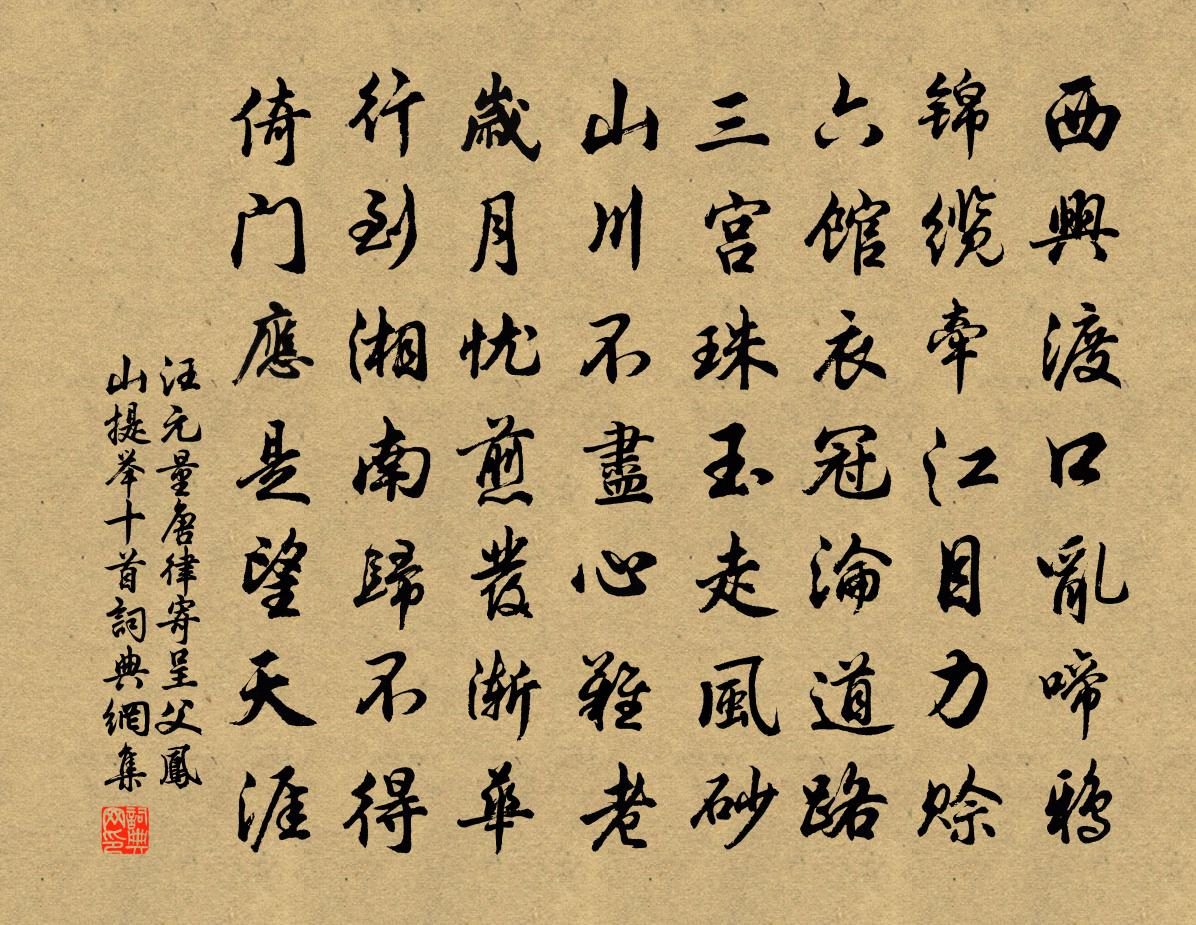 西興渡口亂啼鴉
锦缆牽江目力赊
六館衣冠淪道路
三宮珠玉走風砂
山川不盡心難老
歲月忧煎發漸華
行到湘南歸不得
倚门應是望天涯
汪元量唐律寄呈父鳳
山提举十首詞典網集
詞典
网印